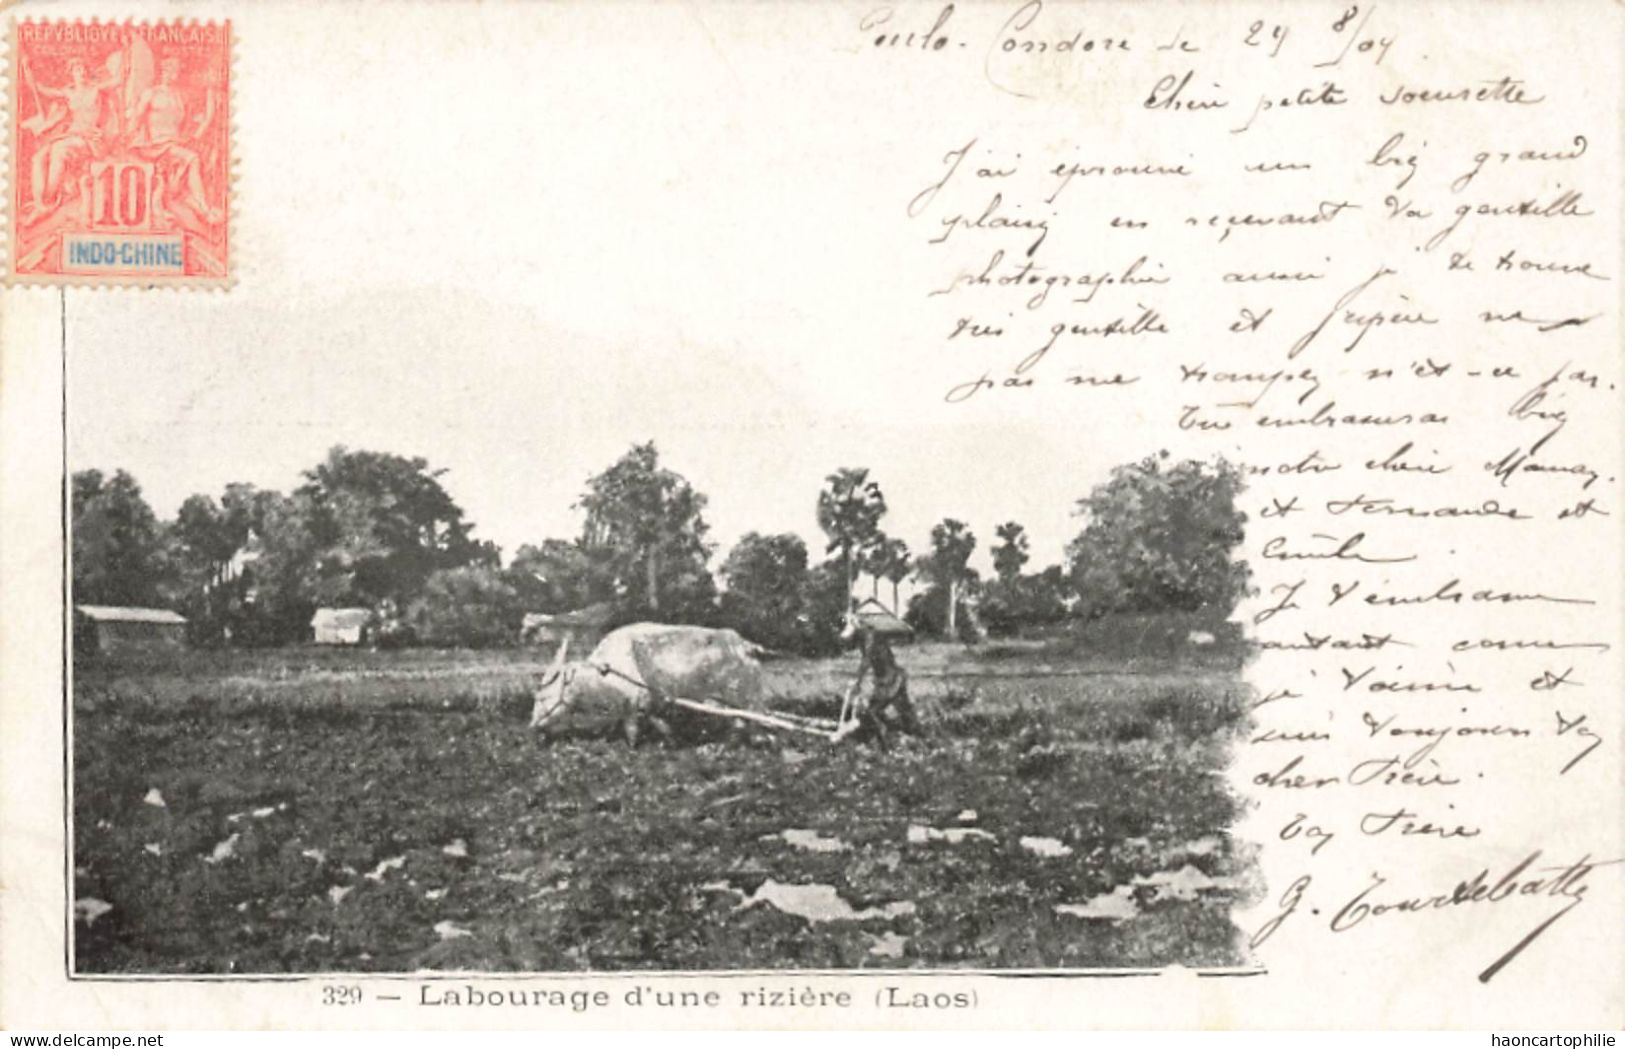 REPVBLIQVE FRANÇAISE
COLONIES POSTES
10
INDO-CHINE
Poulo-Condore le 24 8/04
Chere petite soeurette
J'ai éprouvé un big grand
plaisir en reçevant ta gentille
photographie aussi je te trouve
très gentille et j'espère ne
pas me trompez n'est-ce pas.
Tu embrasseras big
notre chère Maman
et Fernande et
Je t'embrasse
autant comme
je t'aime et
suis toujours ton
cher Frère.
Ton Frère
G.
329 — Labourage d'une rizière (Laos)
www.delcampe.net
haoncartophilie